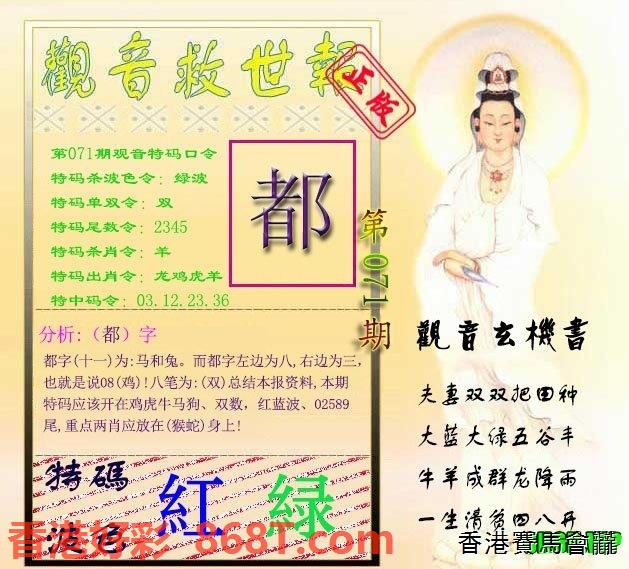 觀音救世報
正版
第071期观音特码口令
特码杀波色令：绿波
特码单双令：双
特码尾数令：2345
特码杀肖令：羊
特码出肖令：龙鸡虎羊
特中码令：03.12.23.36
都
第071期
分析:（都）字
都字(十一)为:马和兔。而都字左边为八,右边为三，
也就是说08(鸡)!八笔为:(双)总结本报资料,本期
特码应该开在鸡虎牛马狗、双数，红蓝波、02589
尾,重点两肖应放在(猴蛇)身上!
特碼
波色
紅 綠
觀音玄機書
夫妻双双把田种
大蓝大绿五谷丰
牛羊成群龙降雨
一生清贫四八开
香港好彩 868T.com
香港賽馬會